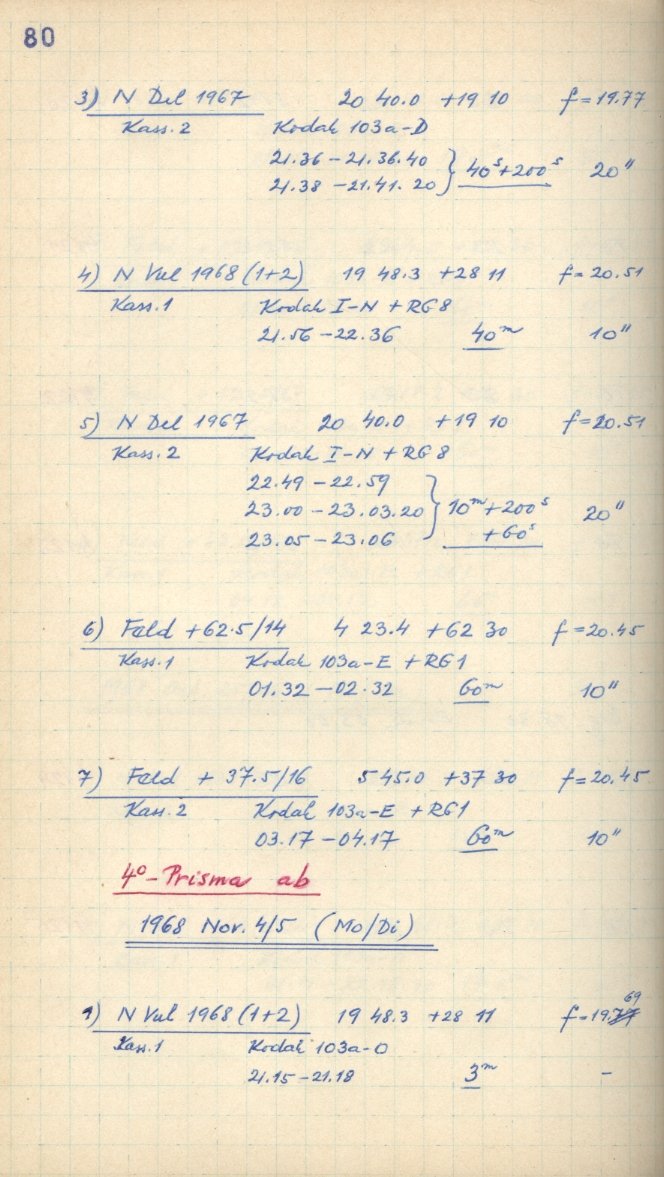 80
3) N Del 1967 20 40.0 +19 10 f = 19.77
Kass. 2 Kodak 103a-D
21.36 – 21.36.40 } 40s + 200s 20"
21.38 – 21.41.20
4) N Vul 1968 (1+2) 19 48.3 +28 11 f = 20.51
Kass. 1 Kodak I-N + RG8
21.56 – 22.36 40m 10"
5) N Del 1967 20 40.0 +19 10 f = 20.51
Kass. 2 Kodak I-N + RG8
22.49 – 22.59
23.00 – 23.03.20 } 10m + 200s 20"
23.05 – 23.06 + 60s
6) Feld +62.5/14 4 23.4 +62 30 f = 20.45
Kass. 1 Kodak 103a-E + RG1
01.32 – 02.32 60m 10"
7) Feld + 37.5/16 5 45.0 +37 30 f = 20.45
Kass. 2 Kodak 103a-E + RG1
03.17 – 04.17 60m 10"
4° - Prisma ab
1968 Nov. 4/5 (Mo/Di)
1) N Vul 1968 (1+2) 19 48.3 +28 11 f = 19.69
Kass. 1 Kodak 103a-O
21.15 – 21.18 3m –